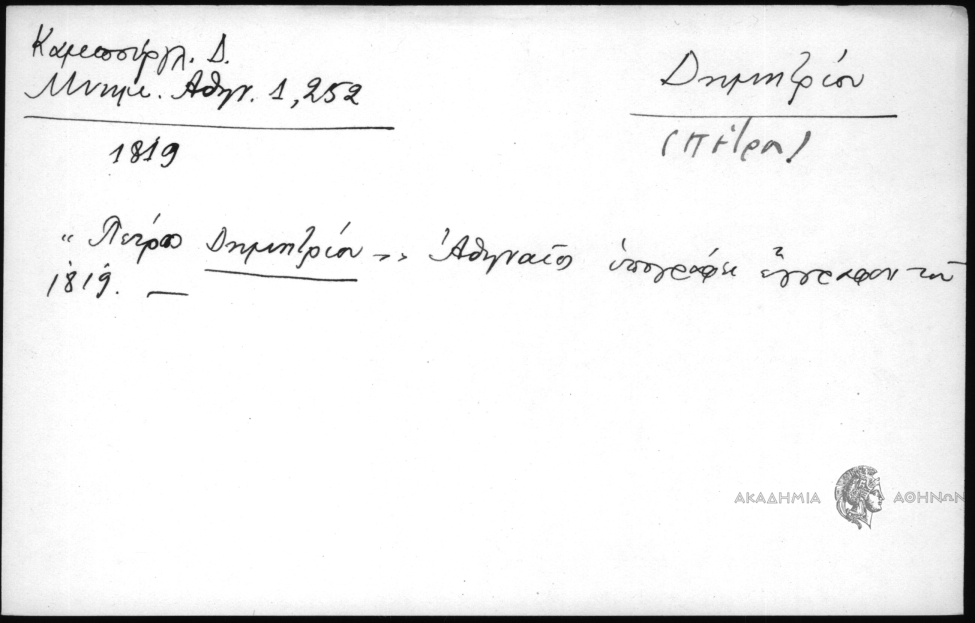 Καμπούργλ. Δ.
Μνημ. Αθην. 1,252
1819
Δημητρίου
(Πέτρο)
" Πέτρο Δημητρίου " Ἀθηναῖος ὑπογράφει ἔγγραφον τοῦ
1819. —
ΑΚΑΔΗΜΙΑ ΑΘΗΝΩΝ